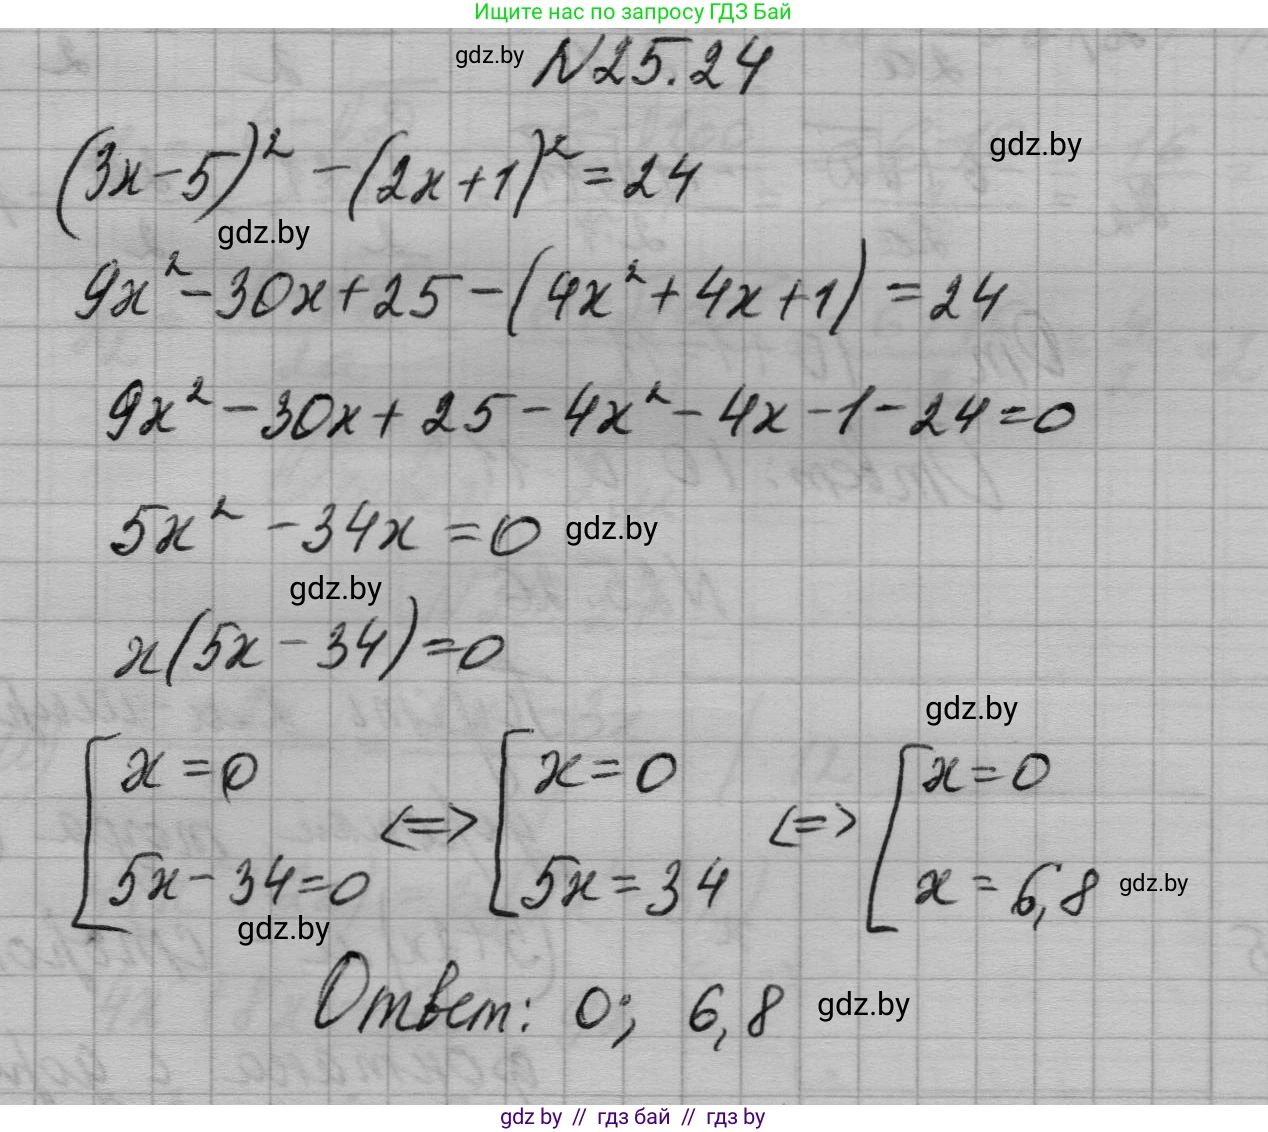 Ищите нас по запросу ГДЗ Бай
gdz.by №25.24
(3x-5)² -(2x+1)² =24
gdz.by
gdz.by
9x²-30x+25-(4x²+4x+1) =24
9x²-30x+25-4x²-4x-1-24=0
5x² -34x =0 gdz.by
gdz.by
x(5x-34)=0
gdz.by
[x=0 <=> [x=0 <=> [x=0
5x-34=0 5x=34 x=6,8 gdz.by
gdz.by
Ответ: 0; 6,8 gdz.by
gdz by // гдз бай // гдз by